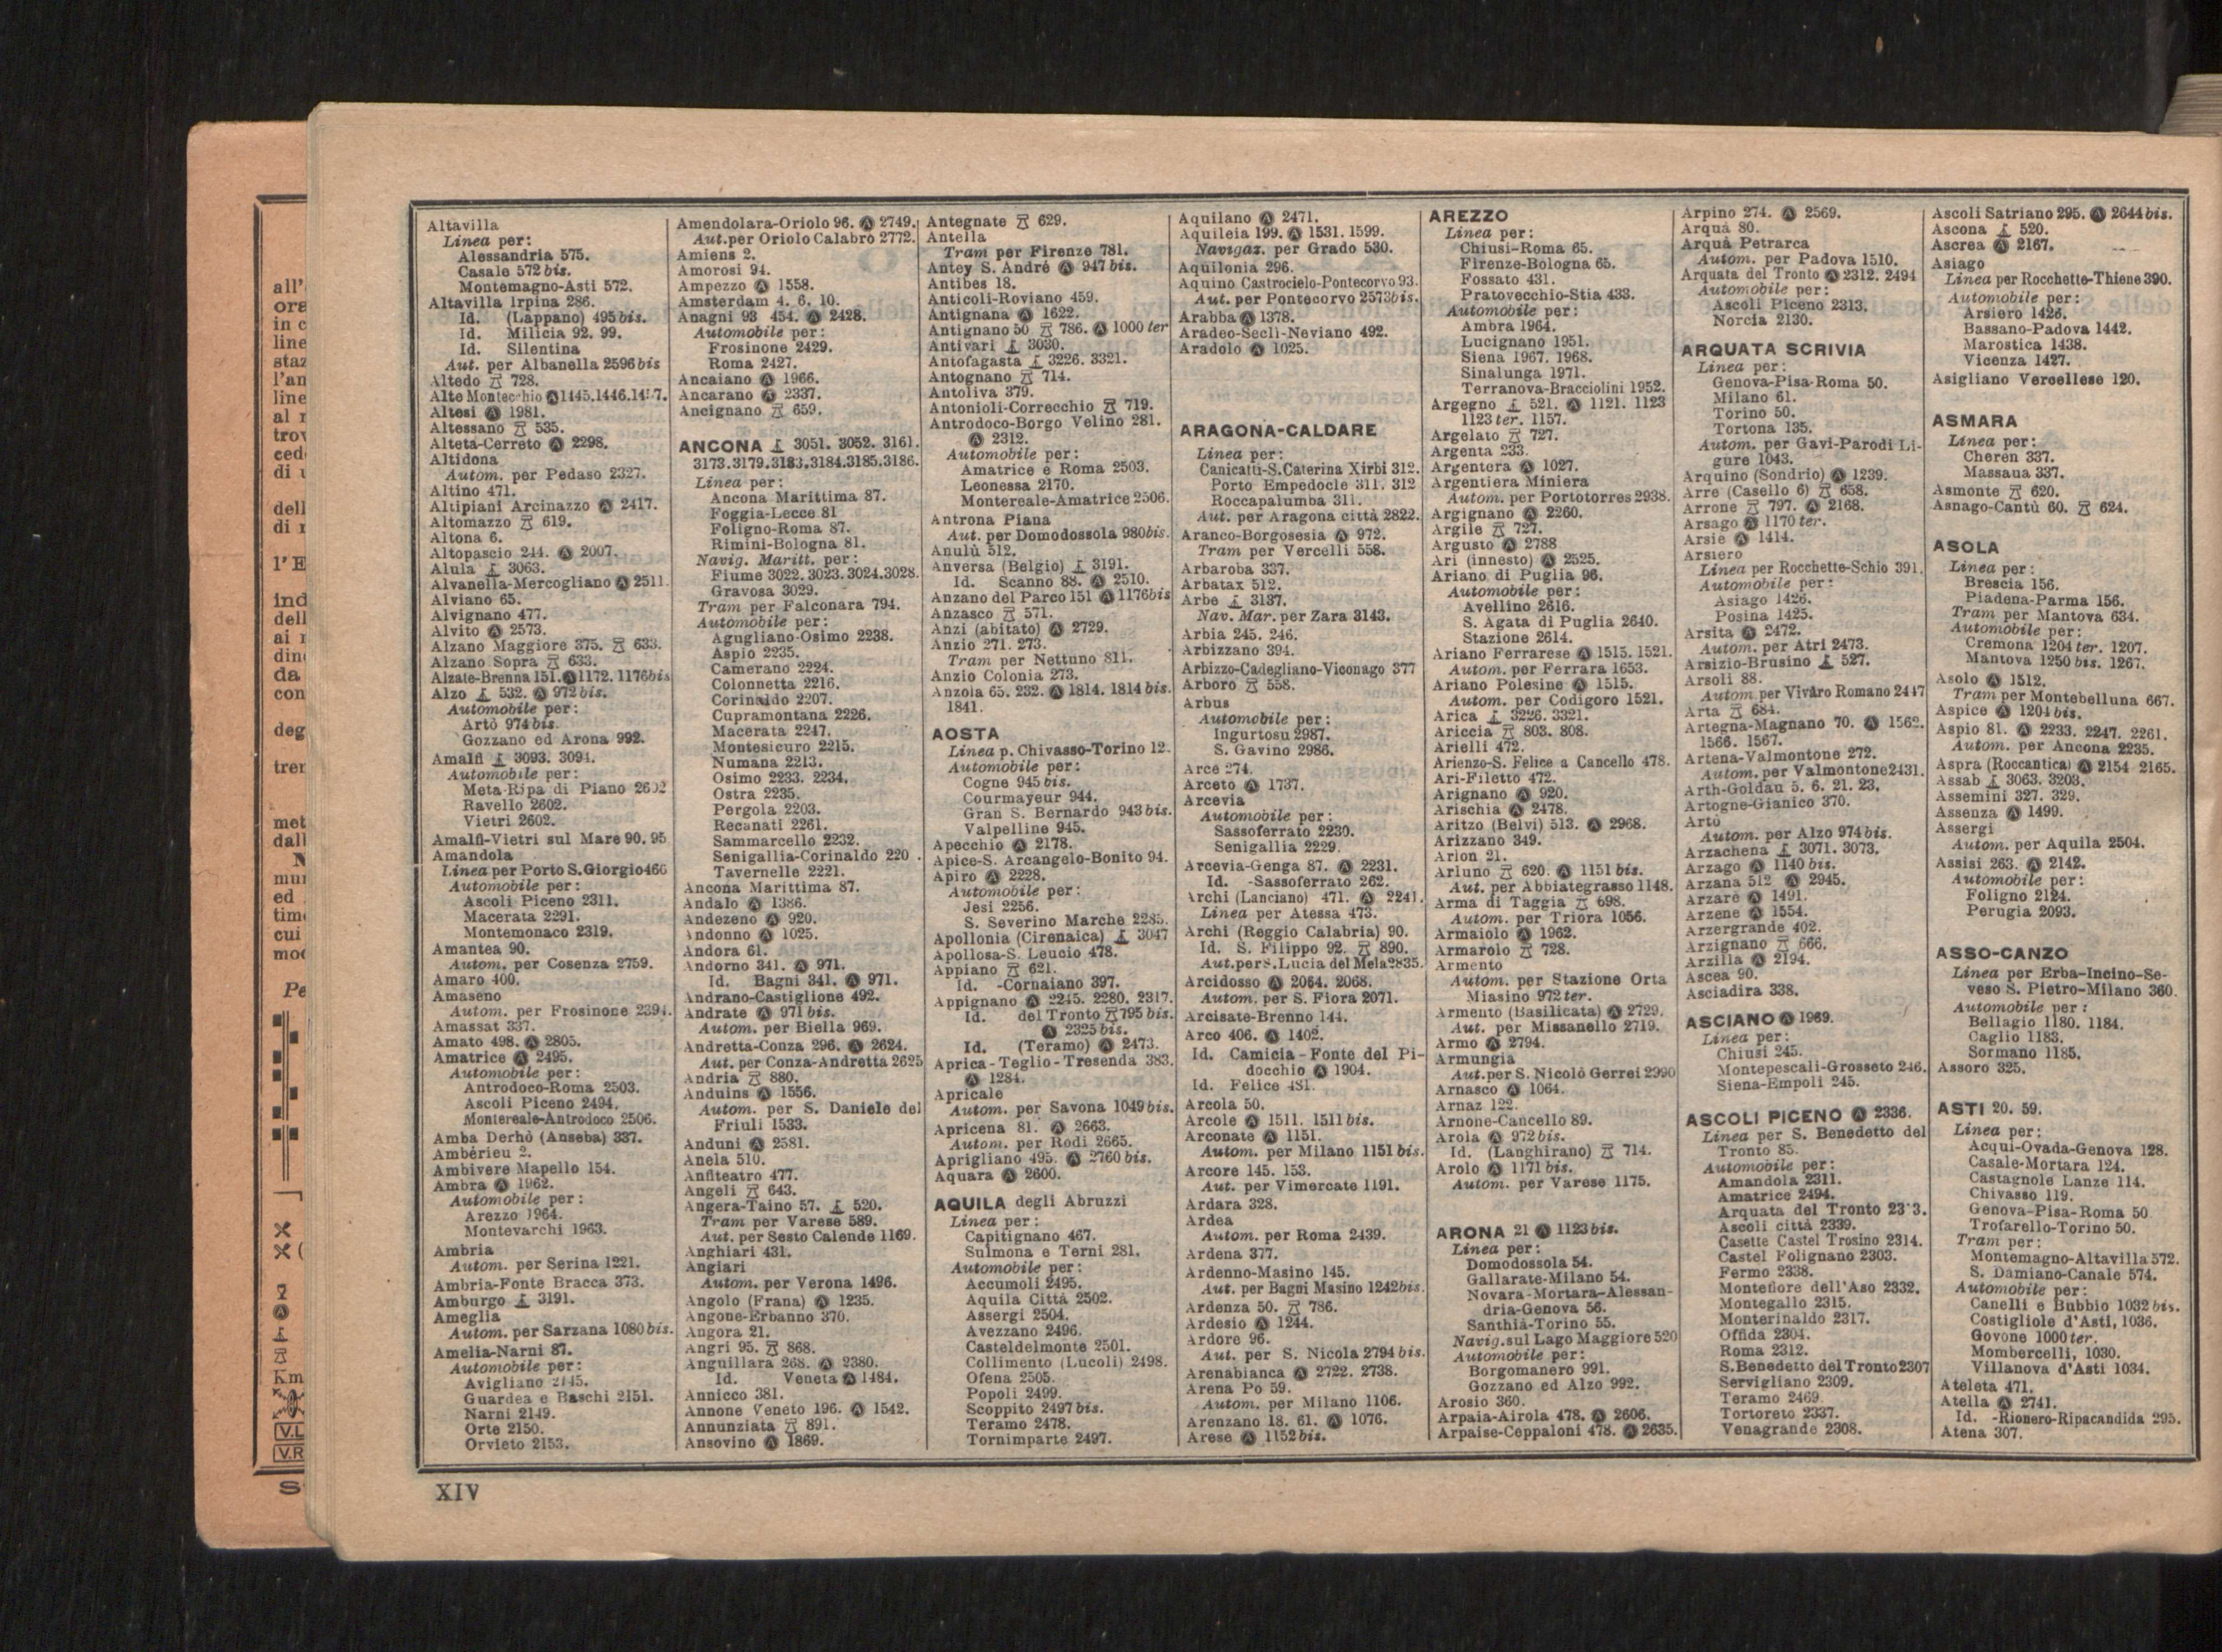 Altavilla
Linea per:
Alessandria 575.
Casale 572 bis.
Montemagno-Asti 572.
Altavilla Irpina 286.
Id. (Lappano) 495 bis.
Id. Milicia 92. 99.
Id. Silentina
Aut. per Albanella 2596 bis
Altedo 728.
Alte Montecchio Ⓐ 1445.1446.
Altesi Ⓐ 1981.
Altessano 535.
Alteta-Cerreto Ⓐ 2298.
Altidona
Autom. per Pedaso 2327.
Altino 471.
Altipiani Arcinazzo Ⓐ 2417.
Altomazzo 619.
Altona 6.
Altopascio 244. Ⓐ 2007.
Alula 3063.
Alvanella-Mercogliano Ⓐ 2511.
Alviano 65.
Alvignano 477.
Alvito Ⓐ 2573.
Alzano Maggiore 375. 633.
Alzano Sopra 633.
Alzate-Brenna 151. Ⓐ 1172. 1176 bis
Alzo 532. Ⓐ 972 bis.
Automobile per:
Artò 974 bis
Gozzano ed Arona 992.
Amalfi 3093. 3094.
Automobile per:
Meta-Ripa di Piano 2602
Ravello 2602.
Vietri 2602.
Amalfi-Vietri sul Mare 90. 95
Amandola
Linea per Porto S.Giorgio 466
Automobile per:
Ascoli Piceno 2311.
Macerata 2291.
Montemonaco 2319.
Amantea 90.
Autom. per Cosenza 2759.
Amaro 400.
Amaseno
Autom. per Frosinone 2394.
Amassat 337.
Amato 498. Ⓐ 2805.
Amatrice Ⓐ 2495.
Automobile per:
Antrodoco-Roma 2503.
Ascoli Piceno 2494.
Montereale-Antrodoco 2506.
Amba Derhò (Anseba) 337.
Ambérieu 2.
Ambivere Mapello 154.
Ambra Ⓐ 1962.
Automobile per:
Arezzo 1964.
Montevarchi 1963.
Ambria
Autom. per Serina 1221.
Ambria-Fonte Bracca 373.
Amburgo 3191.
Ameglia
Autom. per Sarzana 1080 bis.
Amelia-Narni 87.
Automobile per:
Avigliano 2145.
Guardea e Baschi 2151.
Narni 2149.
Orte 2150.
Orvieto 2153.
Amendolara-Oriolo 96. Ⓐ 2749.
Aut.per Oriolo Calabro 2772.
Amiens 2.
Amorosi 94.
Ampezzo Ⓐ 1558.
Amsterdam 4. 6. 10.
Anagni 93 454. Ⓐ 2428.
Automobile per:
Frosinone 2429.
Roma 2427.
Ancaiano Ⓐ 1966.
Ancarano Ⓐ 2337.
Ancignano 659.
ANCONA 3051. 3052. 3161.
3173.3179.3183.3184.3185.3186.
Linea per:
Ancona Marittima 87.
Foggia-Lecce 81
Foligno-Roma 87.
Rimini-Bologna 81.
Navig. Maritt. per:
Fiume 3022.3023.3024.3028.
Gravosa 3029.
Tram per Falconara 794.
Automobile per:
Agugliano-Osimo 2238.
Aspio 2235.
Camerano 2224.
Colonnetta 2216.
Corinaldo 2207.
Cupramontana 2226.
Macerata 2247.
Montesicuro 2215.
Numana 2213.
Osimo 2233. 2234.
Ostra 2235.
Pergola 2203.
Recanati 2261.
Sammarcello 2232.
Senigallia-Corinaldo 220 .
Tavernelle 2221.
Ancona Marittima 87.
Andalo Ⓐ 1386.
Andezeno Ⓐ 920.
Andonno Ⓐ 1025.
Andora 61.
Andorno 341. Ⓐ 971.
Id. Bagni 341. Ⓐ 971.
Andrano-Castiglione 492.
Andrate Ⓐ 971 bis.
Autom. per Biella 969.
Andretta-Conza 296. Ⓐ 2624.
Aut. per Conza-Andretta 2625
Andria 880.
Anduins Ⓐ 1556.
Autom. per S. Daniele del
Friuli 1533.
Anduni Ⓐ 2581.
Anela 510.
Anfiteatro 477.
Angeli 643.
Angera-Taino 57. 520.
Tram per Varese 589.
Aut. per Sesto Calende 1169.
Anghiari 431.
Angiari
Autom. per Verona 1496.
Angolo (Frana) Ⓐ 1235.
Angone-Erbanno 370.
Angora 21.
Angri 95. 868.
Anguillara 268. Ⓐ 2380.
Id. Veneta Ⓐ 1484.
Annicco 381.
Annone Veneto 196. Ⓐ 1542.
Annunziata 891.
Ansovino Ⓐ 1869.
Antegnate 629.
Antella
Tram per Firenze 781.
Antey S. André Ⓐ 947 bis.
Antibes 18.
Anticoli-Roviano 459.
Antignana Ⓐ 1622.
Antignano 50 786. Ⓐ 1000 ter
Antivari 3030.
Antofagasta 3226. 3321.
Antognano 714.
Antoliva 379.
Antonioli-Correcchio 719.
Antrodoco-Borgo Velino 281.
Ⓐ 2312.
Automobile per:
Amatrice e Roma 2503.
Leonessa 2170.
Montereale-Amatrice 2506.
Antrona Piana
Aut. per Domodossola 980bis.
Anulù 512.
Anversa (Belgio) 3191.
Id. Scanno 88. Ⓐ 2510.
Anzano del Parco 151 Ⓐ 1176bis
Anzasco 571.
Anzi (abitato) Ⓐ 2729.
Anzio 271. 273.
Tram per Nettuno 811.
Anzio Colonia 273.
Anzola 65. 232. Ⓐ 1814. 1814 bis.
1841.
AOSTA
Linea p. Chivasso-Torino 12.
Automobile per:
Cogne 945 bis.
Courmayeur 944.
Gran S. Bernardo 943 bis.
Valpelline 945.
Apecchio Ⓐ 2178.
Apice-S. Arcangelo-Bonito 94.
Apiro Ⓐ 2228.
Automobile per:
Jesi 2256.
S. Severino Marche 2285.
Apollonia (Cirenaica) 3047
Apollosa-S. Leucio 478.
Appiano 621.
Id. -Cornaiano 397.
Appignano Ⓐ 2245. 2280. 2317.
Id. del Tronto 795 bis.
Ⓐ 2325 bis.
Id. (Teramo) Ⓐ 2473.
Aprica-Teglio-Tresenda 383.
Ⓐ 1284.
Apricale
Autom. per Savona 1049 bis.
Apricena 81. Ⓐ 2663.
Autom. per Rodi 2665.
Aprigliano 495. Ⓐ 2760 bis.
Aquara Ⓐ 2600.
AQUILA degli Abruzzi
Linea per:
Capitignano 467.
Sulmona e Terni 281.
Automobile per:
Accumoli 2495.
Aquila Città 2502.
Assergi 2504.
Avezzano 2496.
Casteldelmonte 2501.
Collimento (Lucoli) 2498.
Ofena 2505.
Popoli 2499.
Scoppito 2497 bis.
Teramo 2478.
Tornimparte 2497.
Aquilano Ⓐ 2471.
Aquileia 199. Ⓐ 1531. 1599.
Navigaz. per Grado 530.
Aquilonia 296.
Aquino Castrocielo-Pontecorvo 93.
Aut. per Pontecorvo 2573bis.
Arabba Ⓐ 1378.
Aradeo-Seclì-Neviano 492.
Aradolo Ⓐ 1025.
ARAGONA-CALDARE
Linea per:
Canicattì-S.Caterina Xirbi 312.
Porto Empedocle 311. 312
Roccapalumba 311.
Aut. per Aragona città 2822.
Aranco-Borgosesia Ⓐ 972.
Tram per Vercelli 558.
Arbaroba 337.
Arbatax 512.
Arbe 3137.
Nav. Mar. per Zara 3143.
Arbia 245. 246.
Arbizzano 394.
Arbizzo-Cadegliano-Viconago 377
Arboro 558.
Arbus
Automobile per:
Ingurtosu 2987.
S. Gavino 2986.
Arce 274.
Arceto Ⓐ 1737.
Arcevia
Automobile per:
Sassoferrato 2230.
Senigallia 2229.
Arcevia-Genga 87. Ⓐ 2231.
Id. -Sassoferrato 262.
Archi (Lanciano) 471. Ⓐ 2241.
Linea per Atessa 473.
Archi (Reggio Calabria) 90.
Id. S. Filippo 92. 890.
Aut.per S. Lucia del Mela 2835.
Arcidosso Ⓐ 2064. 2068.
Autom. per S. Fiora 2071.
Arcisate-Brenno 144.
Arco 406. Ⓐ 1402.
Id. Camicia-Fonte del Pi-
docchio Ⓐ 1904.
Id. Felice 481.
Arcola 50.
Arcole Ⓐ 1511. 1511 bis.
Arconate Ⓐ 1151.
Autom. per Milano 1151 bis.
Arcore 145. 153.
Aut. per Vimercate 1191.
Ardara 328.
Ardea
Autom. per Roma 2439.
Ardena 377.
Ardenno-Masino 145.
Aut. per Bagni Masino 1242bis.
Ardenza 50. 786.
Ardesio Ⓐ 1244.
Ardore 96.
Aut. per S. Nicola 2794 bis.
Arenabianca Ⓐ 2722. 2738.
Arena Po 59.
Autom. per Milano 1106.
Arenzano 18. 61. Ⓐ 1076.
Arese Ⓐ 1152 bis.
AREZZO
Linea per:
Chiusi-Roma 65.
Firenze-Bologna 65.
Fossato 431.
Pratovecchio-Stia 433.
Automobile per:
Ambra 1964.
Lucignano 1951.
Siena 1967. 1968.
Sinalunga 1971.
Terranova-Bracciolini 1952.
Argegno 521. Ⓐ 1121. 1123
1123 ter. 1157.
Argelato 727.
Argenta 233.
Argentera Ⓐ 1027.
Argentiera Miniera
Autom. per Portotorres 2938.
Argignano Ⓐ 2260.
Argile 727.
Argusto Ⓐ 2788
Ari (innesto) Ⓐ 2525.
Ariano di Puglia 96.
Automobile per:
Avellino 2616.
S. Agata di Puglia 2640.
Stazione 2614.
Ariano Ferrarese Ⓐ 1515. 1521.
Autom. per Ferrara 1653.
Ariano Polesine Ⓐ 1515.
Autom. per Codigoro 1521.
Arica 3226. 3321.
Ariccia 803. 808.
Arielli 472.
Arienzo-S. Felice a Cancello 478.
Ari-Filetto 472.
Arignano Ⓐ 920.
Arischia Ⓐ 2478.
Aritzo (Belvì) 513. Ⓐ 2968.
Arizzano 349.
Arlon 21.
Arluno 620. Ⓐ 1151 bis.
Aut. per Abbiategrasso 1148.
Arma di Taggia 698.
Autom. per Triora 1056.
Armaiolo Ⓐ 1962.
Armarolo 728.
Armento
Autom. per Stazione Orta
Miasino 972 ter.
Armento (Basilicata) Ⓐ 2729.
Aut. per Missanello 2719.
Armo Ⓐ 2794.
Armungia
Aut.per S. Nicolò Gerrei 2990
Arnasco Ⓐ 1064.
Arnaz 122.
Arnone-Cancello 89.
Arola Ⓐ 972 bis.
Id. (Langhirano) 714.
Arolo Ⓐ 1171 bis.
Autom. per Varese 1175.
ARONA 21 Ⓐ 1123 bis.
Linea per:
Domodossola 54.
Gallarate-Milano 54.
Novara-Mortara-Alessan-
dria-Genova 56.
Santhià-Torino 55.
Navig.sul Lago Maggiore 520
Automobile per:
Borgomanero 991.
Gozzano ed Alzo 992.
Arosio 360.
Arpaia-Airola 478. Ⓐ 2606.
Arpaise-Ceppaloni 478. Ⓐ 2635.
Arpino 274. Ⓐ 2569.
Arquà 80.
Arquà Petrarca
Autom. per Padova 1510.
Arquata del Tronto Ⓐ 2312. 2494
Automobile per:
Ascoli Piceno 2313.
Norcia 2130.
ARQUATA SCRIVIA
Linea per:
Genova-Pisa-Roma 50.
Milano 61.
Torino 50.
Tortona 135.
Autom. per Gavi-Parodi Li-
gure 1043.
Arquino (Sondrio) Ⓐ 1239.
Arre (Casello 6) 658.
Arrone 797. Ⓐ 2168.
Arsago Ⓐ 1170 ter.
Arsiè Ⓐ 1414.
Arsiero
Linea per Rocchette-Schio 391.
Automobile per:
Asiago 1426.
Posina 1425.
Arsita Ⓐ 2472.
Autom. per Atri 2473.
Arsizio-Brusino 527.
Arsoli 88.
Autom per Vivaro Romano 2447
Arta 684.
Artegna-Magnano 70. Ⓐ 1562.
1566. 1567.
Artena-Valmontone 272.
Autom. per Valmontone 2431.
Arth-Goldau 5. 6. 21. 23.
Artogne-Gianico 370.
Artò
Autom. per Alzo 974 bis.
Arzachena 3071. 3073.
Arzago Ⓐ 1140 bis.
Arzana 512 Ⓐ 2945.
Arzarè Ⓐ 1491.
Arzene Ⓐ 1554.
Arzergrande 402.
Arzignano 666.
Arzilla Ⓐ 2194.
Ascea 90.
Asciadira 338.
ASCIANO Ⓐ 1969.
Linea per:
Chiusi 245.
Montepescali-Grosseto 246.
Siena-Empoli 245.
ASCOLI PICENO Ⓐ 2336.
Linea per S. Benedetto del
Tronto 85.
Automobile per:
Amandola 2311.
Amatrice 2494.
Arquata del Tronto 23 3.
Ascoli città 2339.
Casette Castel Trosino 2314.
Castel Folignano 2303.
Fermo 2338.
Montefiore dell'Aso 2332.
Montegallo 2315.
Monterinaldo 2317.
Offida 2304.
Roma 2312.
S.Benedetto del Tronto 2307
Servigliano 2309.
Teramo 2469.
Tortoreto 2337.
Venagrande 2308.
Ascoli Satriano 295. Ⓐ 2644 bis.
Ascona 520.
Ascrea Ⓐ 2167.
Asiago
Linea per Rocchette-Thiene 390.
Automobile per:
Arsiero 1426.
Bassano-Padova 1442.
Marostica 1438.
Vicenza 1427.
Asigliano Vercellese 120.
ASMARA
Linea per:
Cheren 337.
Massaua 337.
Asmonte 620.
Asnago-Cantù 60. 624.
ASOLA
Linea per:
Brescia 156.
Piadena-Parma 156.
Tram per Mantova 634.
Automobile per:
Cremona 1204 ter. 1207.
Mantova 1250 bis. 1267.
Asolo Ⓐ 1512.
Tram per Montebelluna 667.
Aspice Ⓐ 1204 bis.
Aspio 81. Ⓐ 2233. 2247. 2261.
Autom. per Ancona 2235.
Aspra (Roccantica) Ⓐ 2154 2165.
Assab 3063. 3203.
Assemini 327. 329.
Assenza Ⓐ 1499.
Assergi
Autom. per Aquila 2504.
Assisi 263. Ⓐ 2142.
Automobile per:
Foligno 2124.
Perugia 2093.
ASSO-CANZO
Linea per Erba-Incino-Se-
veso S. Pietro-Milano 360.
Automobile per:
Bellagio 1180. 1184.
Caglio 1183.
Sormano 1185.
Assoro 325.
ASTI 20. 59.
Linea per:
Acqui-Ovada-Genova 128.
Casale-Mortara 124.
Castagnole Lanze 114.
Chivasso 119.
Genova-Pisa-Roma 50
Trofarello-Torino 50.
Tram per:
Montemagno-Altavilla 572.
S. Damiano-Canale 574.
Automobile per:
Canelli e Bubbio 1032 bis.
Costigliole d'Asti, 1036.
Govone 1000 ter.
Mombercelli, 1030.
Villanova d'Asti 1034.
Ateleta 471.
Atella Ⓐ 2741.
Id. -Rionero-Ripacandida 295.
Atena 307.
XIV